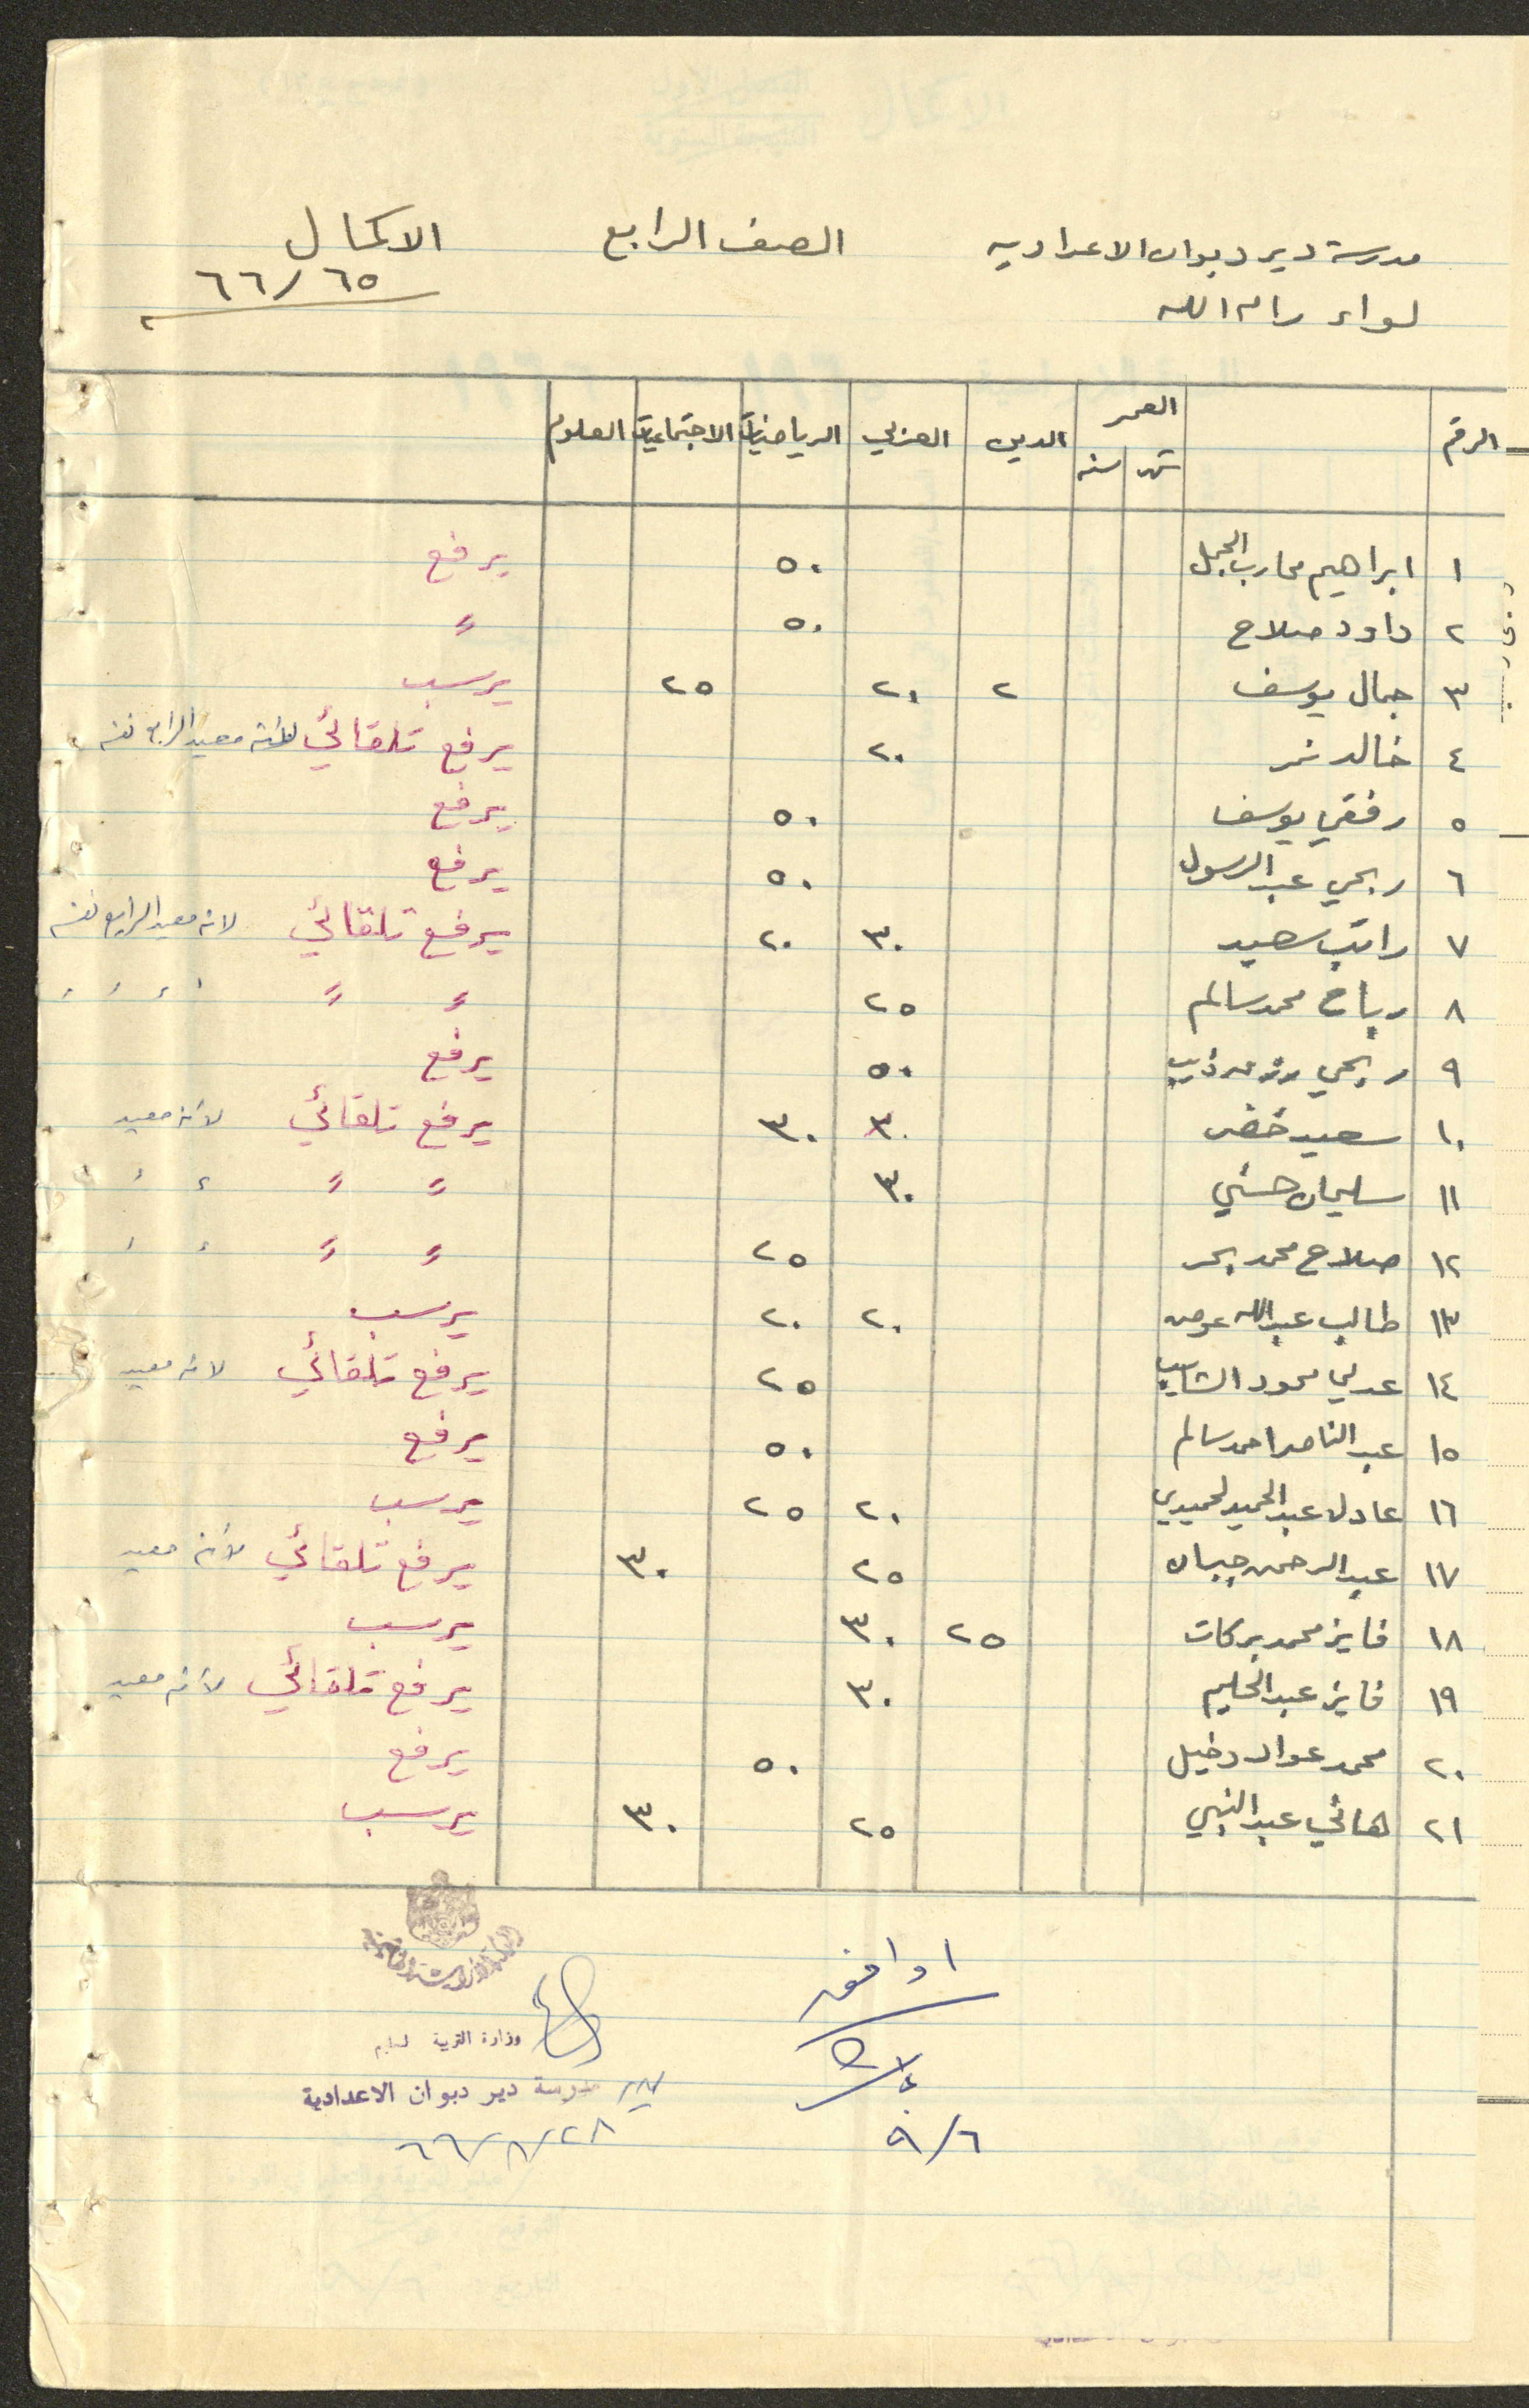 مدرسة دير دبوان الاعدادية الصف الرابع الاكمال
لواء رام الله ٦٥/٦٦
الرقم العمر الدين العربي الرياضيات الاجتماعيات العلوم
شهر سنه
١ ابراهيم محارب الجمل ٥٠ يرفع
٢ داود صلاح ٥٠ "
٣ جمال يوسف ٢ ٢٠ ٢٥ يرسب
٤ خالد نمر ٢٠ يرفع تلقائي لانه معيد الرابع نفسه
٥ رفقي يوسف ٥٠ يرفع
٦ ربحي عبد الرسول ٥٠ يرفع
٧ راتب سعيد ٣٠ ٢٠ يرفع تلقائي لانه معيد الرابع نفسه
٨ رباح محمد سالم ٢٥ " " " " " "
٩ ربحي ذيب ٥٠ يرفع
١٠ سعيد خضر ٣٠ ٣٠ يرفع تلقائي لانه معيد
١١ سليمان حسني ٣٠ " " " "
١٢ صلاح محمد بحر ٢٥ " " " "
١٣ طالب عبدالله عوض ٢٠ ٢٠ يرسب
١٤ عدلي محمود الشايب ٢٥ يرفع تلقائي لانه معيد
١٥ عبد الناصر احمد سالم ٥٠ يرفع
١٦ عادل عبد الحميد حميدي ٢٠ ٢٥ يرسب
١٧ عبد الرحمن جبسان ٢٥ ٣٠ يرفع تلقائي لأنه معيد
١٨ فايز محمد بركات ٢٥ ٣٠ يرسب
١٩ فايز عبد الحليم ٣٠ يرفع تلقائي لأنه معيد
٢٠ محمد عواد دخيل ٥٠ يرفع
٢١ هاني عبد النبي ٢٥ ٣٠ يرسب
اوافق
٦/٩
وزارة التربية والتعليم
مدير مدرسة دير دبوان الاعدادية
٢٨/٨/٦٦